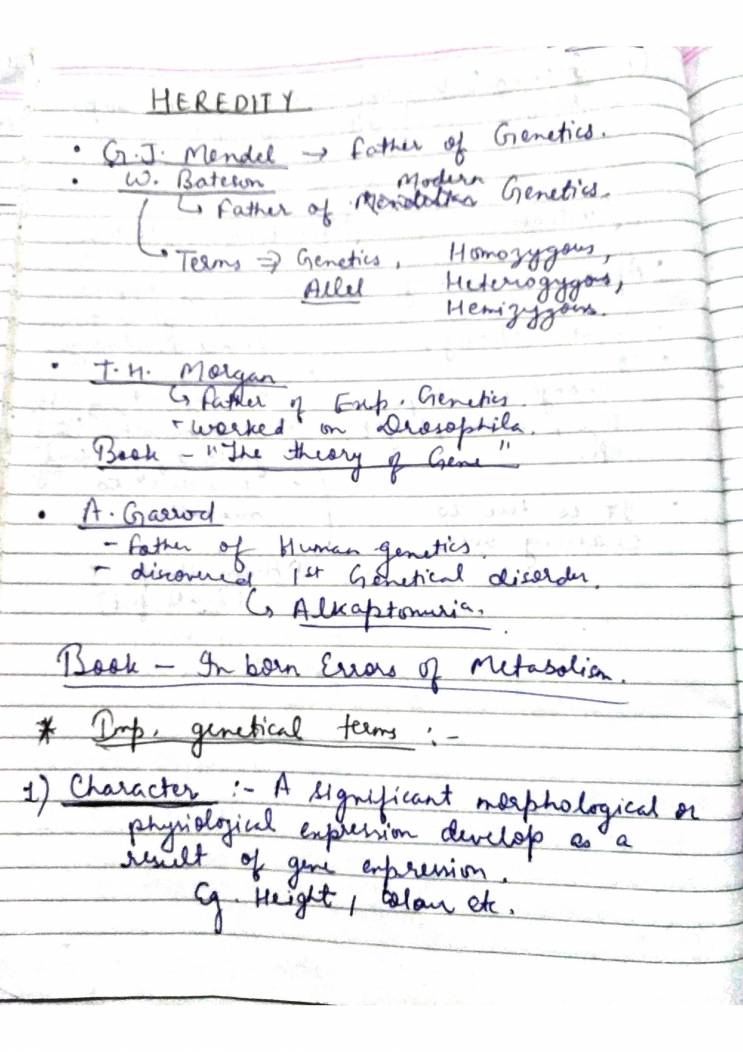 HEREDITY
• G.J. Mendel → Father of Genetics.
• W. Bateson
↳ Father of Modern Genetics.
• Terms ⇒ Genetics, Homozygous,
Allel Heterogygous,
Hemizygous.
• T.H. Morgan
↳ Father of Exp. Genetics.
- worked on Drosophila.
Book - "The theory of Gene"
• A. Garrod
- Father of Human genetics.
- discovered 1st Genetical disorder.
↳ Alkaptonuria.
Book - In born Errors of Metabolism.
* Imp. genetical terms :-
1) Character :- A significant morphological or
physiological expression develop as a
result of gene expression.
Eg. Height, Colour etc.